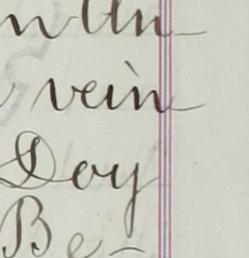 vein
Doy
Be-